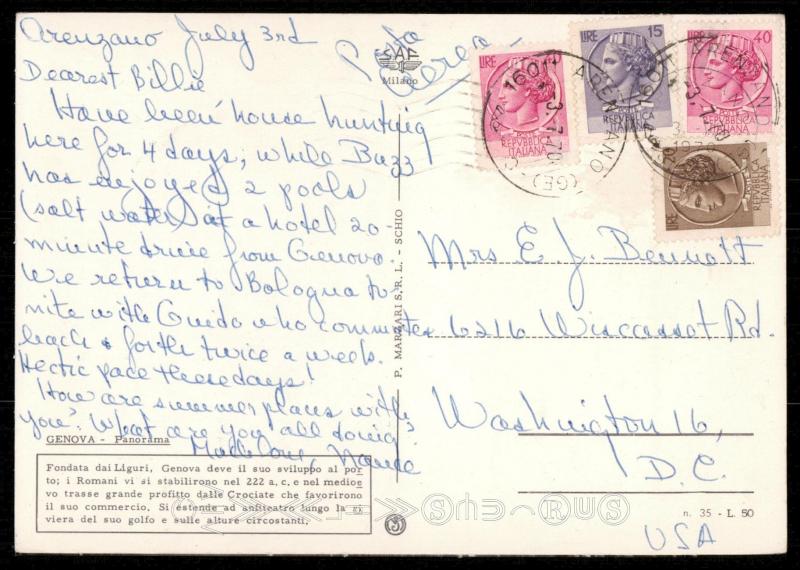 Arenzano July 3rd
Dearest Billie
Have been house hunting
here for 4 days, while Buzz
has enjoyed 2 pools
(salt water) at a hotel 20-
minute drive from Genova.
We return to Bologna to-
nite with Guido who commutes
back & forth twice a week.
Hectic pace these days!
How are summer plans with
you? What are you all doing?
Much love,
GENOVA - Panorama
Fondata dai Liguri, Genova deve il suo sviluppo al por
to; i Romani vi si stabilirono nel 222 a, c. e nel medioe
vo trasse grande profitto dalle Crociate che favorirono
il suo commercio. Si estende ad anfiteatro lungo la ri
viera del suo golfo e sulle alture circostanti,
SAF
Milano
Aerea
P. MARZARI S. R. L. - SCHIO
LIRE
REPVBBLICA
ITALIANA
LIRE 15
REPVBBLICA
ITALIANA
LIRE 40
POSTE
REPVBBLICA
ITALIANA
LIRE
REPVBBLICA
ITALIANA
16011 ARENZANO (GE)
ARENZANO
Mrs E. J. Bennett
6216 Wiscasset Rd.
Washington 16,
D.C.
n. 35 - L. 50
USA